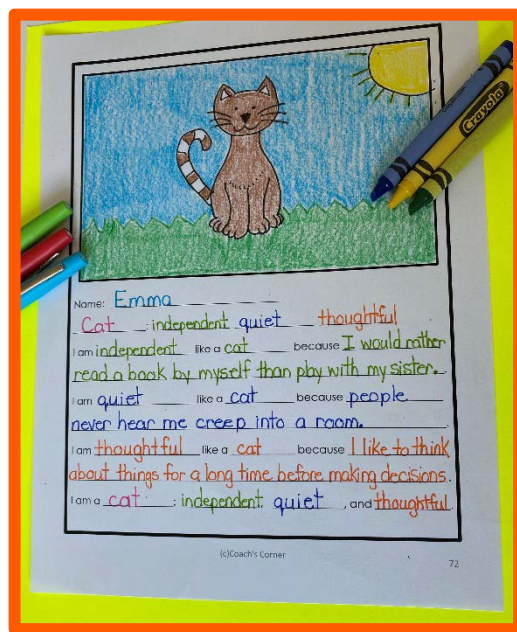 Crayola
Name: Emma
Cat : independent quiet thoughtful
I am independent like a cat because I would rather
read a book by myself than play with my sister.
I am quiet like a cat because people
never hear me creep into a room.
I am thoughtful like a cat because I like to think
about things for a long time before making decisions.
I am a cat : independent quiet , and thoughtful.
(c)Coach's Corner
72